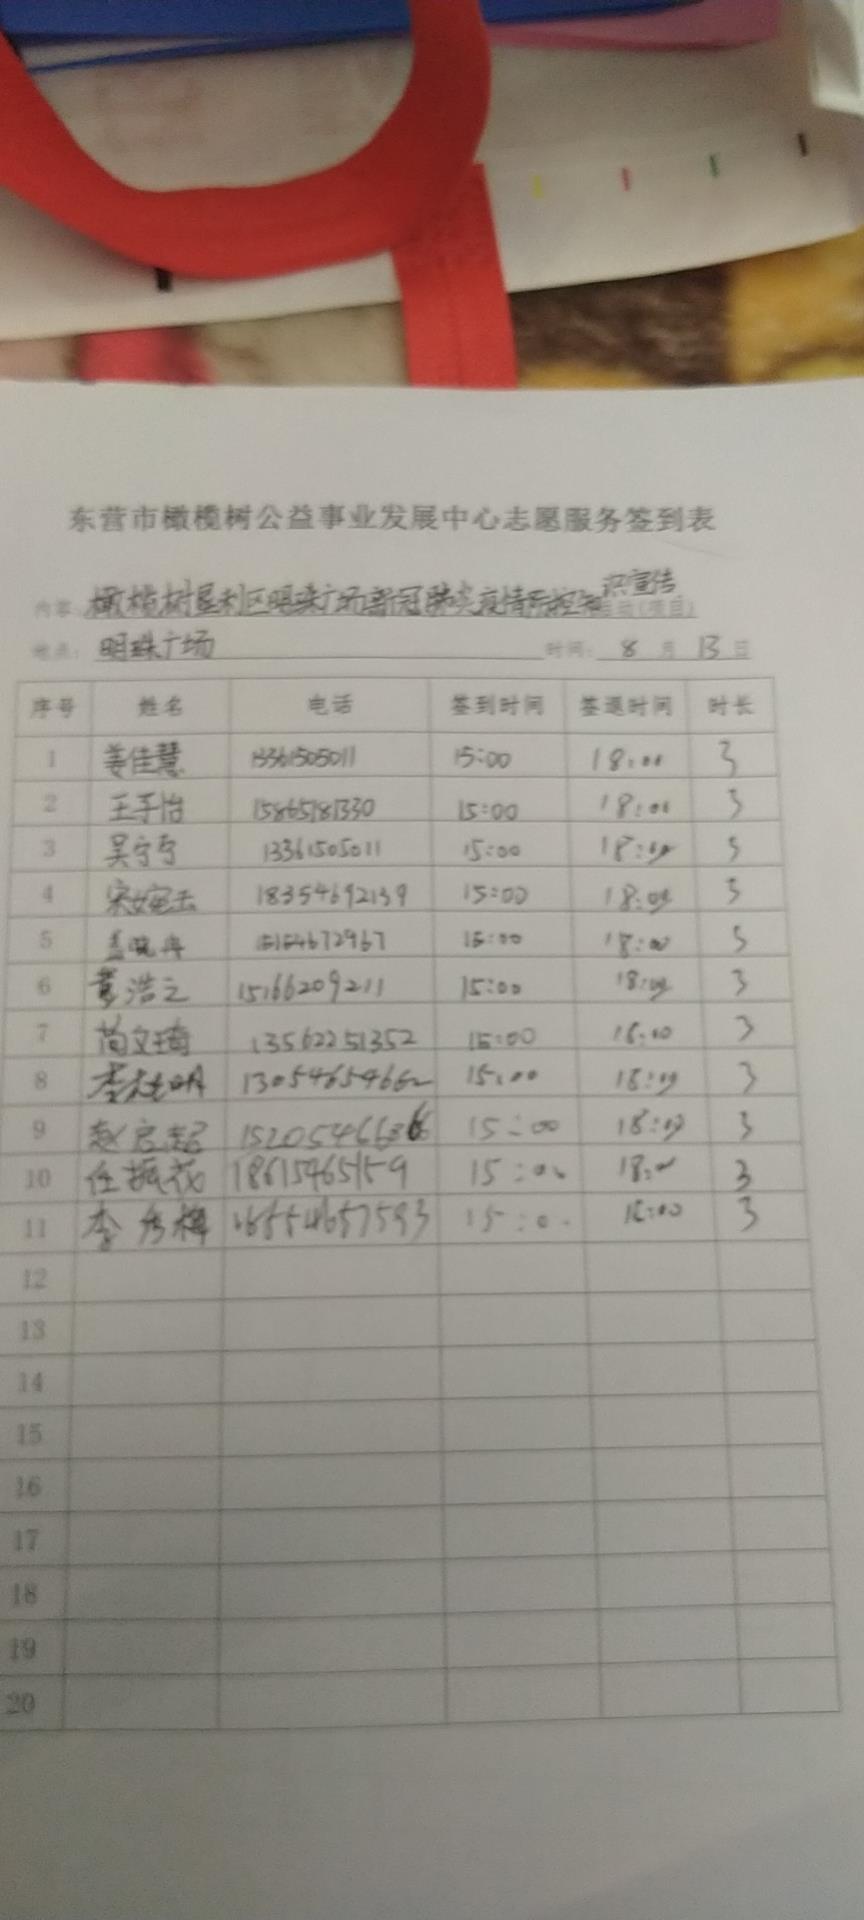 东营市橄榄树公益事业发展中心志愿服务签到表
识宣传
内容:橄榄树垦利区明珠广场新冠肺炎疫情防控知活动(项目)
地点:明珠广场 时间:8月13日
序号 姓名 电话 签到时间 签退时间 时长
1 姜佳慧 13361505011 15:00 18:00 3
2 王予怡 15865181330 15:00 18:00 3
3 吴宁宁 13361505011 15:00 18:00 3
4 宋婉 18354692139 15:00 18:00 3
5 15154672967 15:00 18:00 3
6 浩之 15166209211 15:00 18:00 3
7 文琦 13562251352 15:00 18:00 3
8 李 明 13054654662 15:00 18:00 3
9 赵 超 15:00 18:00 3
10 任振花 18615465159 15:00 18:00 3
11 李秀梅 15:00 18:00 3
12
13
14
15
16
17
18
19
20